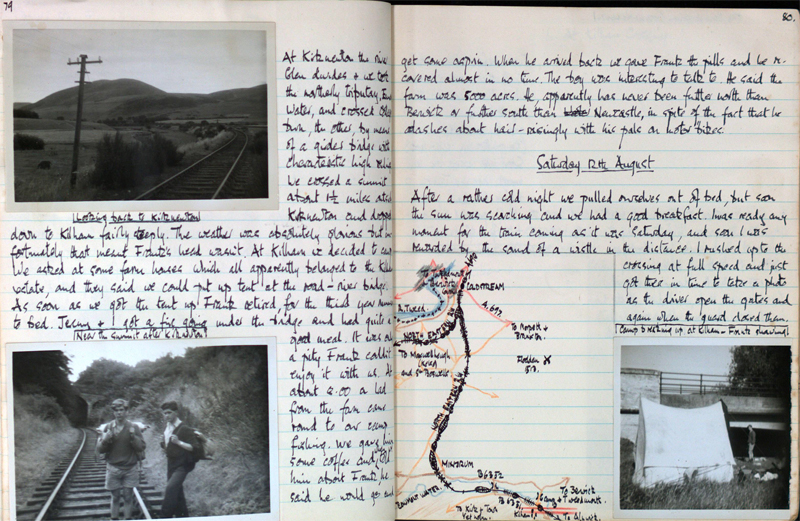 79
At Kirknewton the river
Glen divides & we took
the northerly tributary,
Water, and crossed
turn, the other, by means
of a girder bridge with
characteristic high
We crossed a summit
about 1½ miles after
Kirknewton and dropped
Looking back to Kirknewton
down to Kilham fairly steeply. The weather was absolutely glorious but
fortunately that meant Frantz's head wasn't. At Kilham we decided to camp
We asked at some farm houses which all apparently belonged to the
estate, and they said we could put up tent at the road-river bridge.
As soon as we got the tent up Frantz retired for the third year
to bed. Jeremy & I got a fire going under the bridge and had quite a
Near the summit after Kirknewton
good meal. It was
a pity Frantz couldn't
enjoy it with us. At
about 8.00 a lad
from the farm came
round to our camp
fishing. We gave him
some coffee and told
him about Frantz, he
said he would go and
80.
get some aspirin. When he arrived back we gave Frantz the pills and he re-
covered almost in no time. The boy was interesting to talk to. He said the
farm was 5000 acres. He, apparently has never been further north than
Berwick or further south than Newcastle, in spite of the fact that he
dashes about hair-raisingly with his pals on motor bikes.
Saturday 12th August
After a rather cold night we pulled ourselves out of bed, but soon
the sun was scorching and we had a good breakfast. I was ready any
moment for the train coming as it was Saturday, and soon I was
rewarded by the sound of a wistle in the distance. I rushed up to the
crossing at full speed and just
got there in time to take a photo
as the driver open the gates and
again when the guard closed them.
Camp breaking up at Kilham - Frantz shaving!
COLDSTREAM
A.697
R. TWEED
To Morpeth &
To Maxwellheugh
and St Boswells
Flodden
1513.
MINDRUM
B6352
To Berwick
& Tweedmouth.
Kilham
To Kirk & Town
Yetholm.
To Alnwick